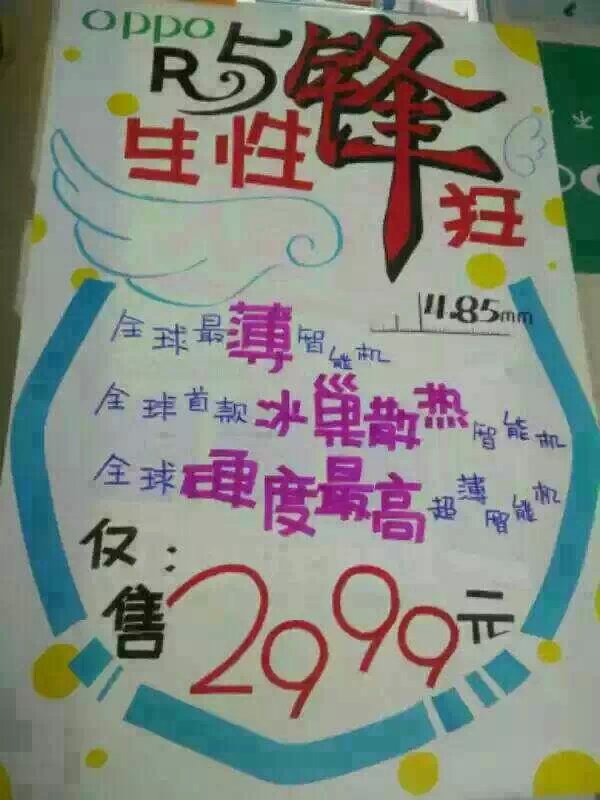 oppo
R5锋
生性 狂
4.85mm
全球最薄智能机
全球首款冰巢散热智能机
全球硬度最高超薄智能机
仅:
售2999元